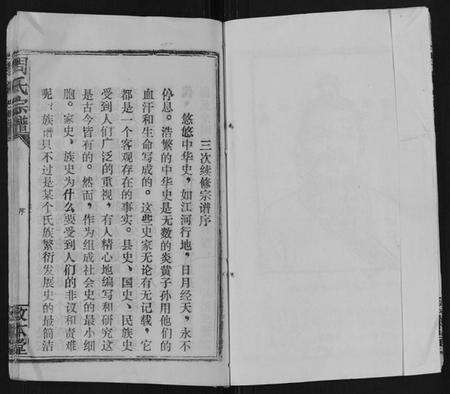 三次续修宗谱序
悠悠中华史，如江河行地，日月经天，永不
停息。浩繁的中华史是无数的炎黄子孙用他们的
血汗和生命写成的。这些史家无论有无记载，它
都是一个客观存在的事实。县史、国史、民族史
受到人们广泛的重视，有人精心地编写和研究这
是古今皆有的。然而，作为组成社会史的最小细
胞。家史、族史为什么要受到人们的非议和责难
呢？族谱只不过是某个氏族繁衍发展史的最简洁
氏宗谱
序
敦本堂